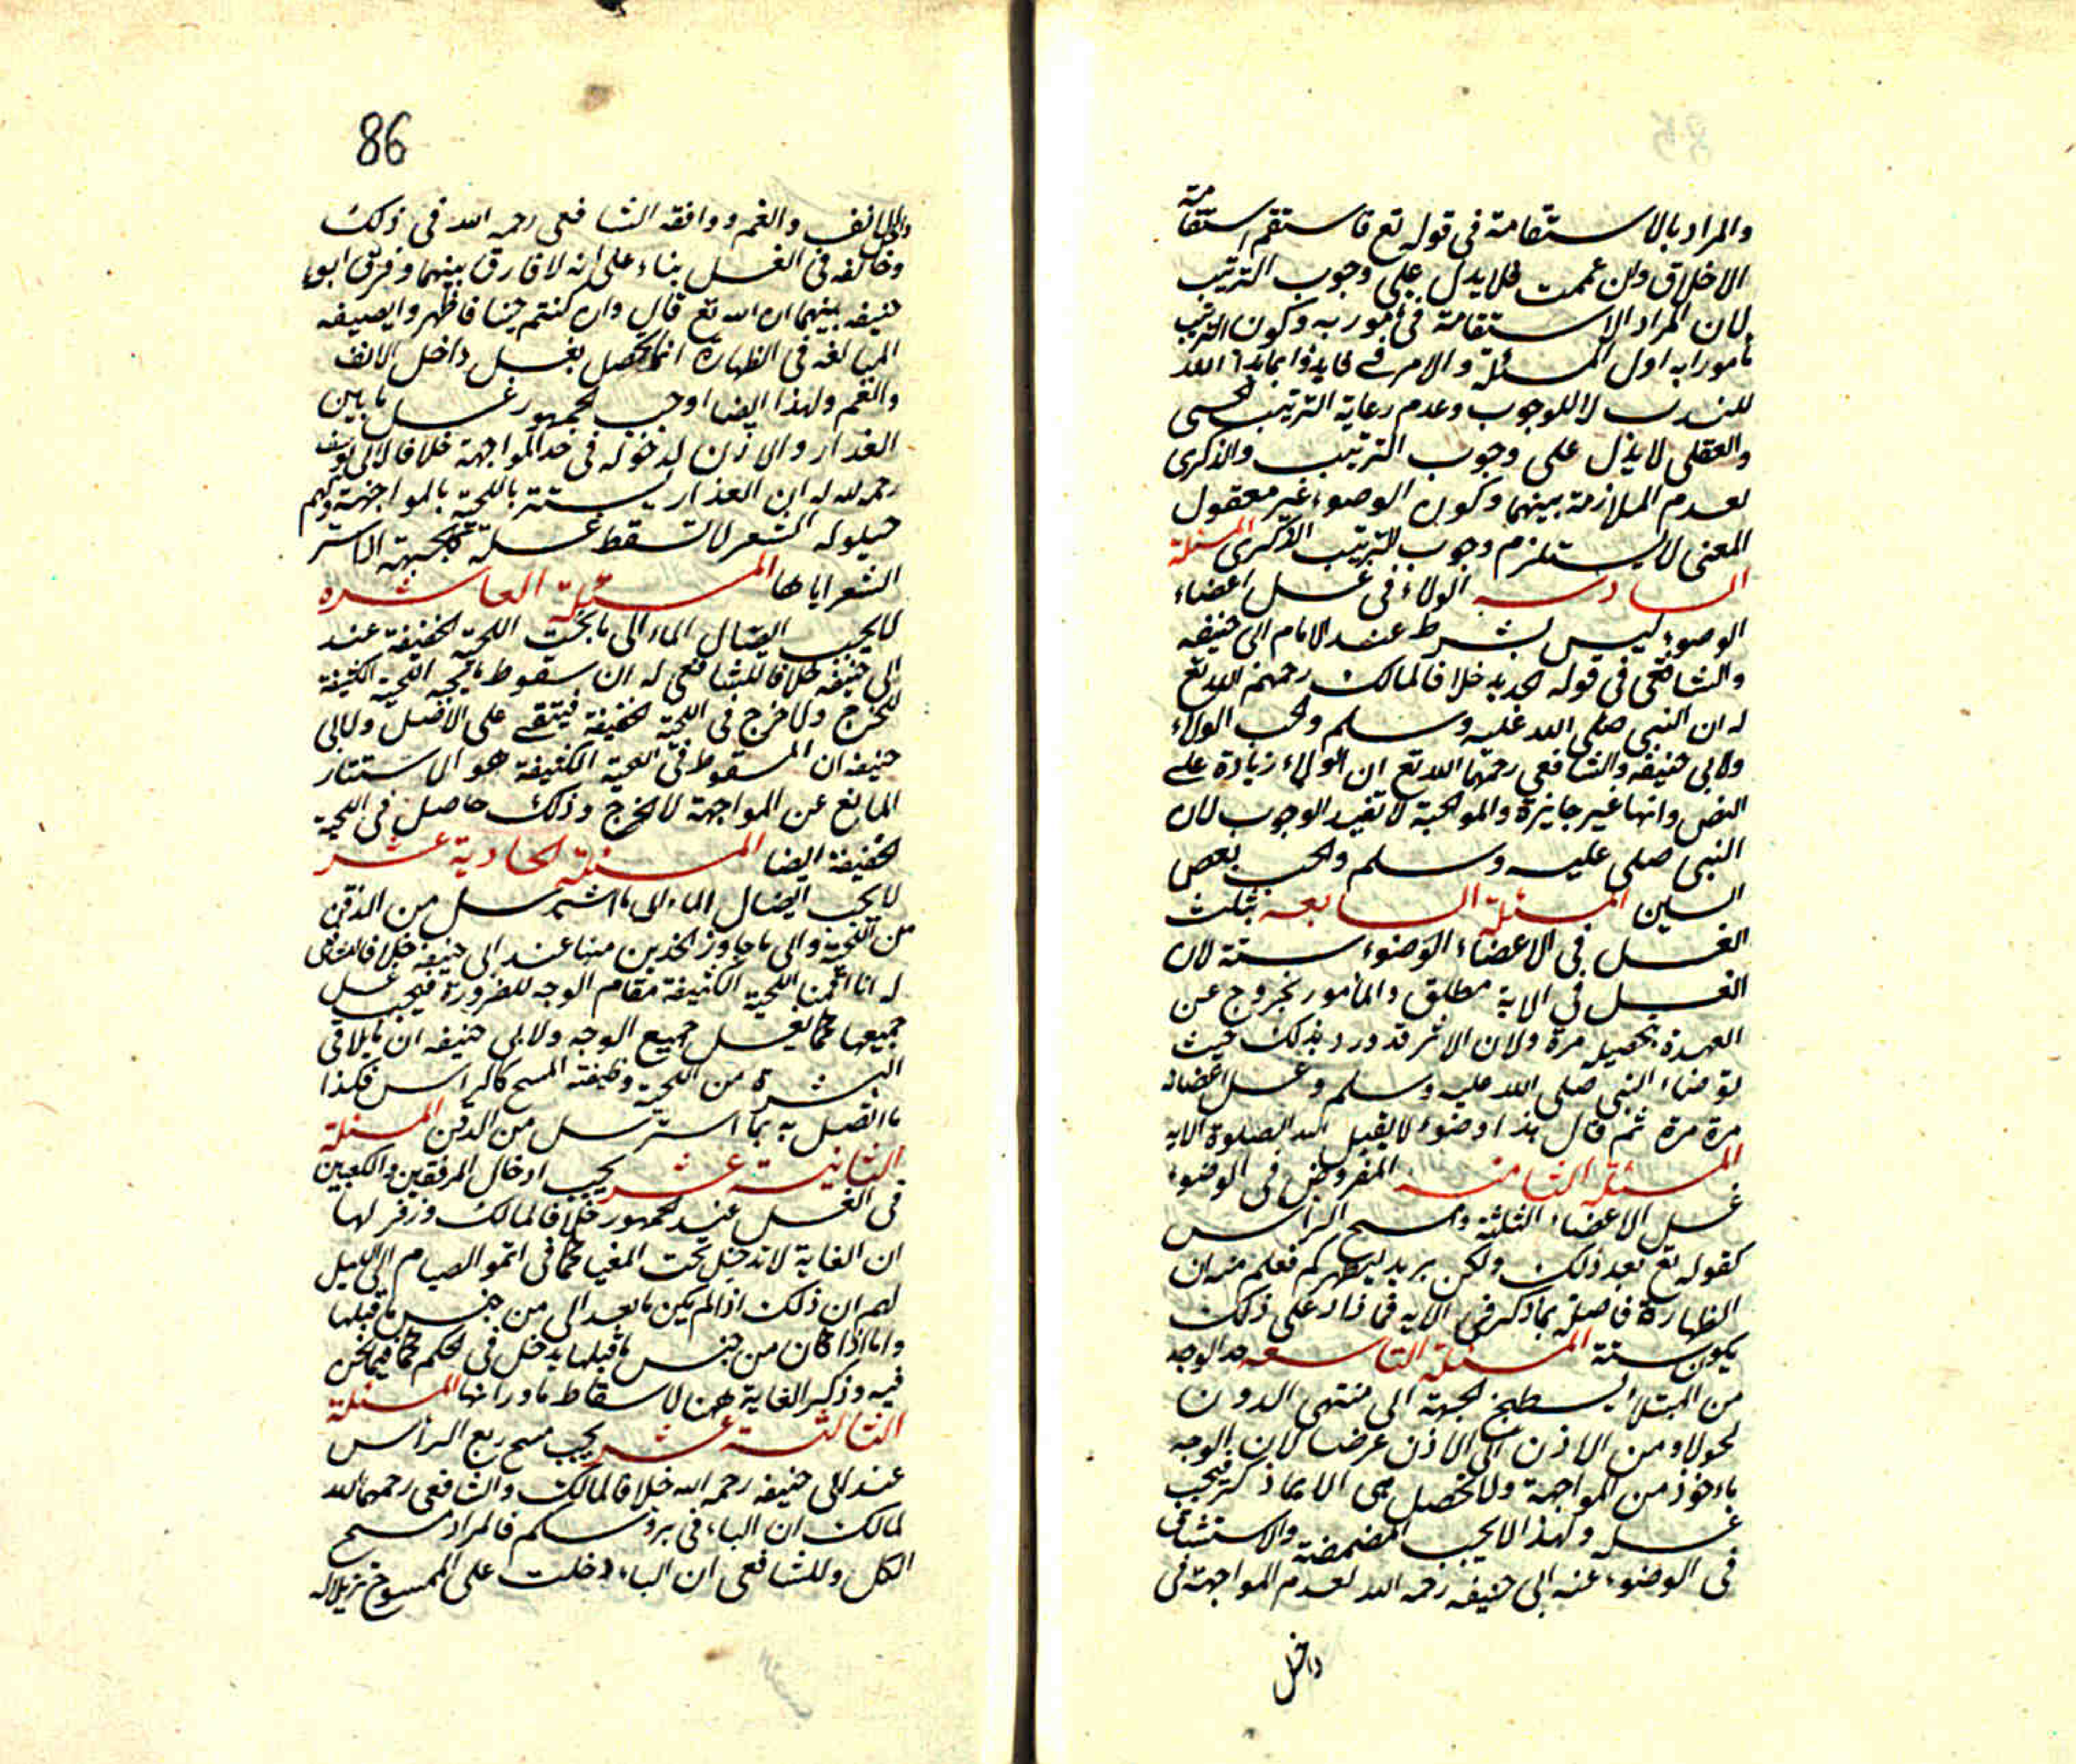 والمراد بالاستقامة في قوله تع فاستقم استقامة
الاخلاق ولن عممت فلا يدل على وجوب الترتيب
لان المراد الاستقامة في مأمور به وكون الترتيب
مأمورا به اول المسئلة والامر في فابدؤا بما بدا الله
للندب لا للوجوب وعدم رعاية الترتيب الحسي
والعقلي لا يدل على وجوب الترتيب والذكري
لعدم الملازمة بينهما وكون الوضوء غير معقول
المعنى لا يستلزم وجوب الترتيب الذكري المسئلة
السادسه الولاء في غسل اعضاء
الوضوء ليس بشرط عند الامام ابي حنيفه
والشافعي في قوله الجديد خلافا لمالك رحمهم الله تع
له ان النبي صلى الله عليه وسلم واظب الولاء
ولابي حنيفه والشافعي رحمهما الله تع ان الولاء زيادة على
النص وانها غير جايزة والمواظبة لا تفيد الوجوب لان
النبي صلى عليه وسلم واظب بعض
السنن المسئلة السابعه تثليث
الغسل في الاعضاء الوضوء سنة لان
الغسل في الاية مطلق والمأمور يخرج عن
العهدة بتحصيله مرة ولان الاثر قد ورد بذلك حيث
توضاء النبي صلى الله عليه وسلم وغسل اعضائه
مرة مرة ثم قال هذا وضوء لا يقبل الله الصلوة الا به
المسئلة الثامنه المفروض في الوضوء
غسل الاعضاء الثلثة ومسح الراس
كقوله تع بعد ذلك ولكن يريد ليطهركم فعلم منه ان
الطهارة حاصلة بما ذكر في الاية فما زاد على ذلك
يكون سنة المسئلة التاسعه حد الوجه
من المبتدأ سطح الجبهة الى منتهى الذقن
طولا ومن الاذن الى الاذن عرضا لان الوجه
مأخوذ من المواجهة ولا تحصل هي الا بما ذكر فيجب
غسله ولهذا لا يجب المضمضة والاستنشاق
في الوضوء عند ابي حنيفه رحمه الله لعدم المواجهة في
داخل
86
داخل الانف والفم ووافقه الشافعي رحمه الله في ذلك
وخالفه في الغسل بناء على انه لا فارق بينهما وفرق ابو
حنيفه بينهما ان الله تع قال وان كنتم جنبا فاطهروا
المبالغة في الطهارة انما تحصل بغسل داخل الانف
والفم ولهذا ايضا اوجب الجمهور غسل ما بين
العذار والاذن لدخوله في حد المواجهة خلافا لابي يوسف
رحمه الله له ان العذار يستتر باللحية بالمواجهة ولهم
حيلولة الشعر لا تسقط غسله كالجبهة الساتر
الشعر اياها المسئلة العاشره
لا يجب ايصال الماء الى ما تحت اللحية الخفيفة عند
ابي حنيفه خلافا للشافعي له ان سقوط ما تحت اللحية الكثيفة
للحرج ولا حرج في اللحية الخفيفة فيبقى على الاصل ولابي
حنيفه ان المسقوط في اللحية الكثيفة هو الاستتار
المانع عن المواجهة لا الحرج وذلك حاصل في اللحية
الخفيفة ايضا المسئلة الحادية عشر
لا يجب ايصال الماء الى ما استرسل من الذقن
من اللحية والى ما جاوز الخدين منها عند ابي حنيفه خلافا للشافعي
له انا اقمنا اللحية الكثيفة مقام الوجه للضرورة فيجب غسل
جميعها كما يغسل جميع الوجه ولابي حنيفه ان ما يلاقي
البشرة من اللحية وظيفته المسح كالراس فكذا
ما اتصل به بما استرسل من الذقن المسئلة
الثانية عشر يجب ادخال المرفقين والكعبين
في الغسل عند الجمهور خلافا لمالك وزفر لهما
ان الغاية لا تدخل تحت المغيا كما في اتموا الصيام الى الليل
لهم ان ذلك اذا لم يكن ما بعد الى من جنس ما قبلها
واما اذا كان من جنس ما قبلها يدخل في الحكم كما فيما نحن
فيه وذكر الغاية هنا لاسقاط ما ورائها المسئلة
الثالثة عشر يجب مسح ربع الرأس
عند ابي حنيفه رحمه الله خلافا لمالك والشافعي رحمهما الله
لمالك ان الباء في برؤسكم فالمراد مسح
الكل وللشافعي ان الباء دخلت على الممسوح تنزيلا له